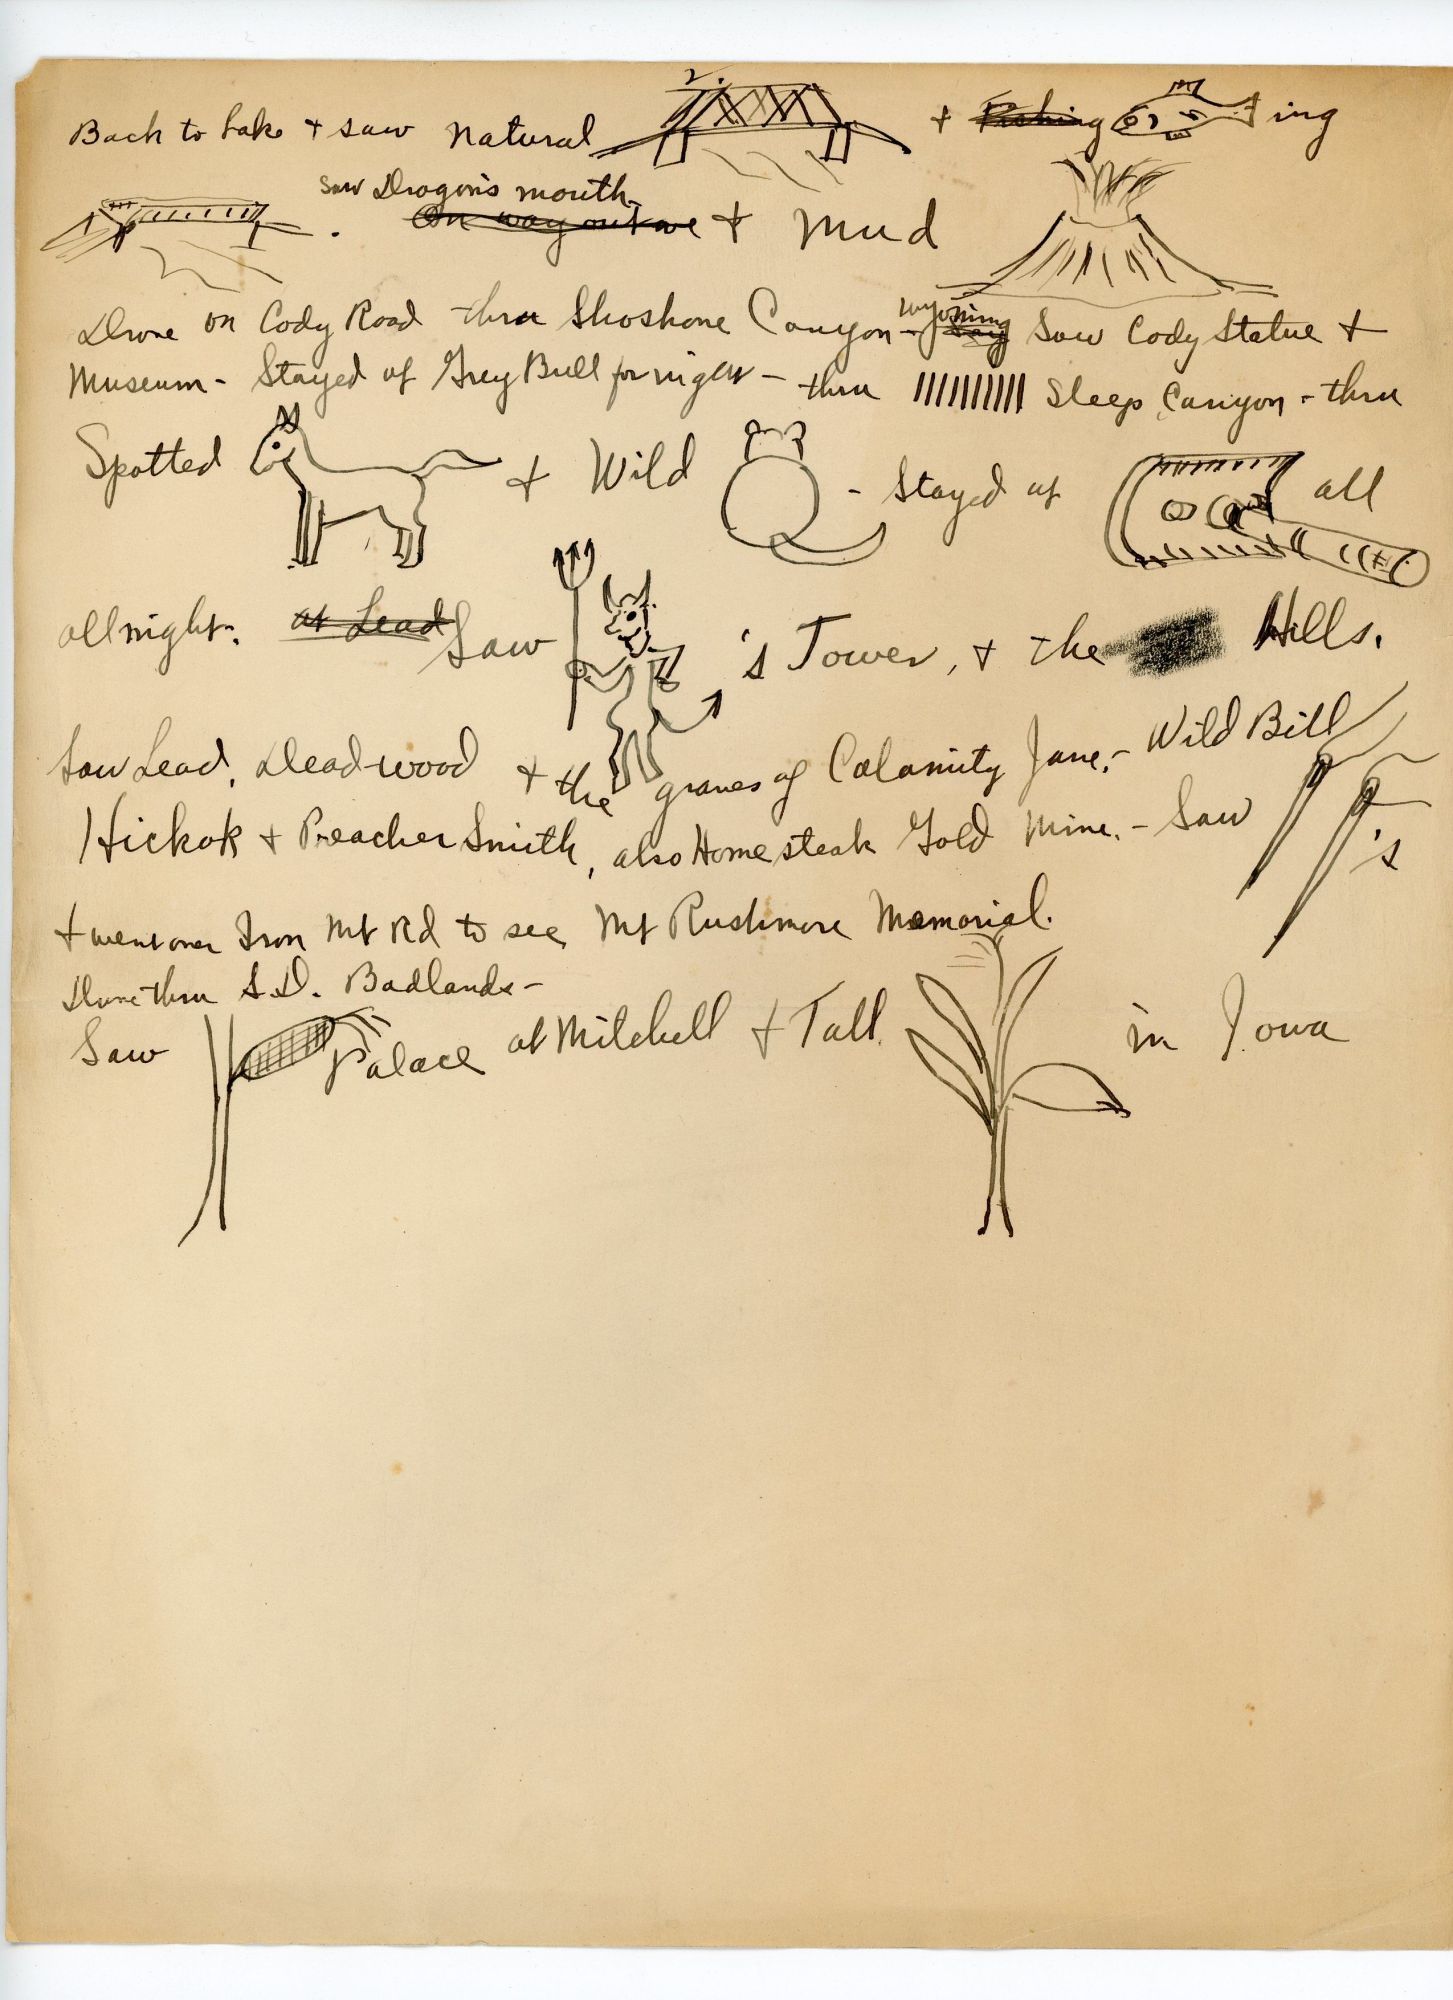 Back to Lake + saw Natural + Fishing ing
saw Dragon's mouth
. On way out we + Mud
Drove on Cody Road thru Shoshone Canyon - Wyoming Saw Cody Statue +
Museum - Stayed at Grey Bull for night - thru Sleep Canyon - thru
Spotted + Wild - Stayed at all
all night. at Lead Saw 's Tower, + the Hills.
Saw Lead, Deadwood + the graves of Calamity Jane, - Wild Bill
Hickok + Preacher Smith, also Homesteak Gold Mine. - Saw 's
+ went over Iron Mt Rd to see Mt Rushmore Memorial.
Drove thru S.D. Badlands -
Saw Palace at Mitchell + Tall in Iowa